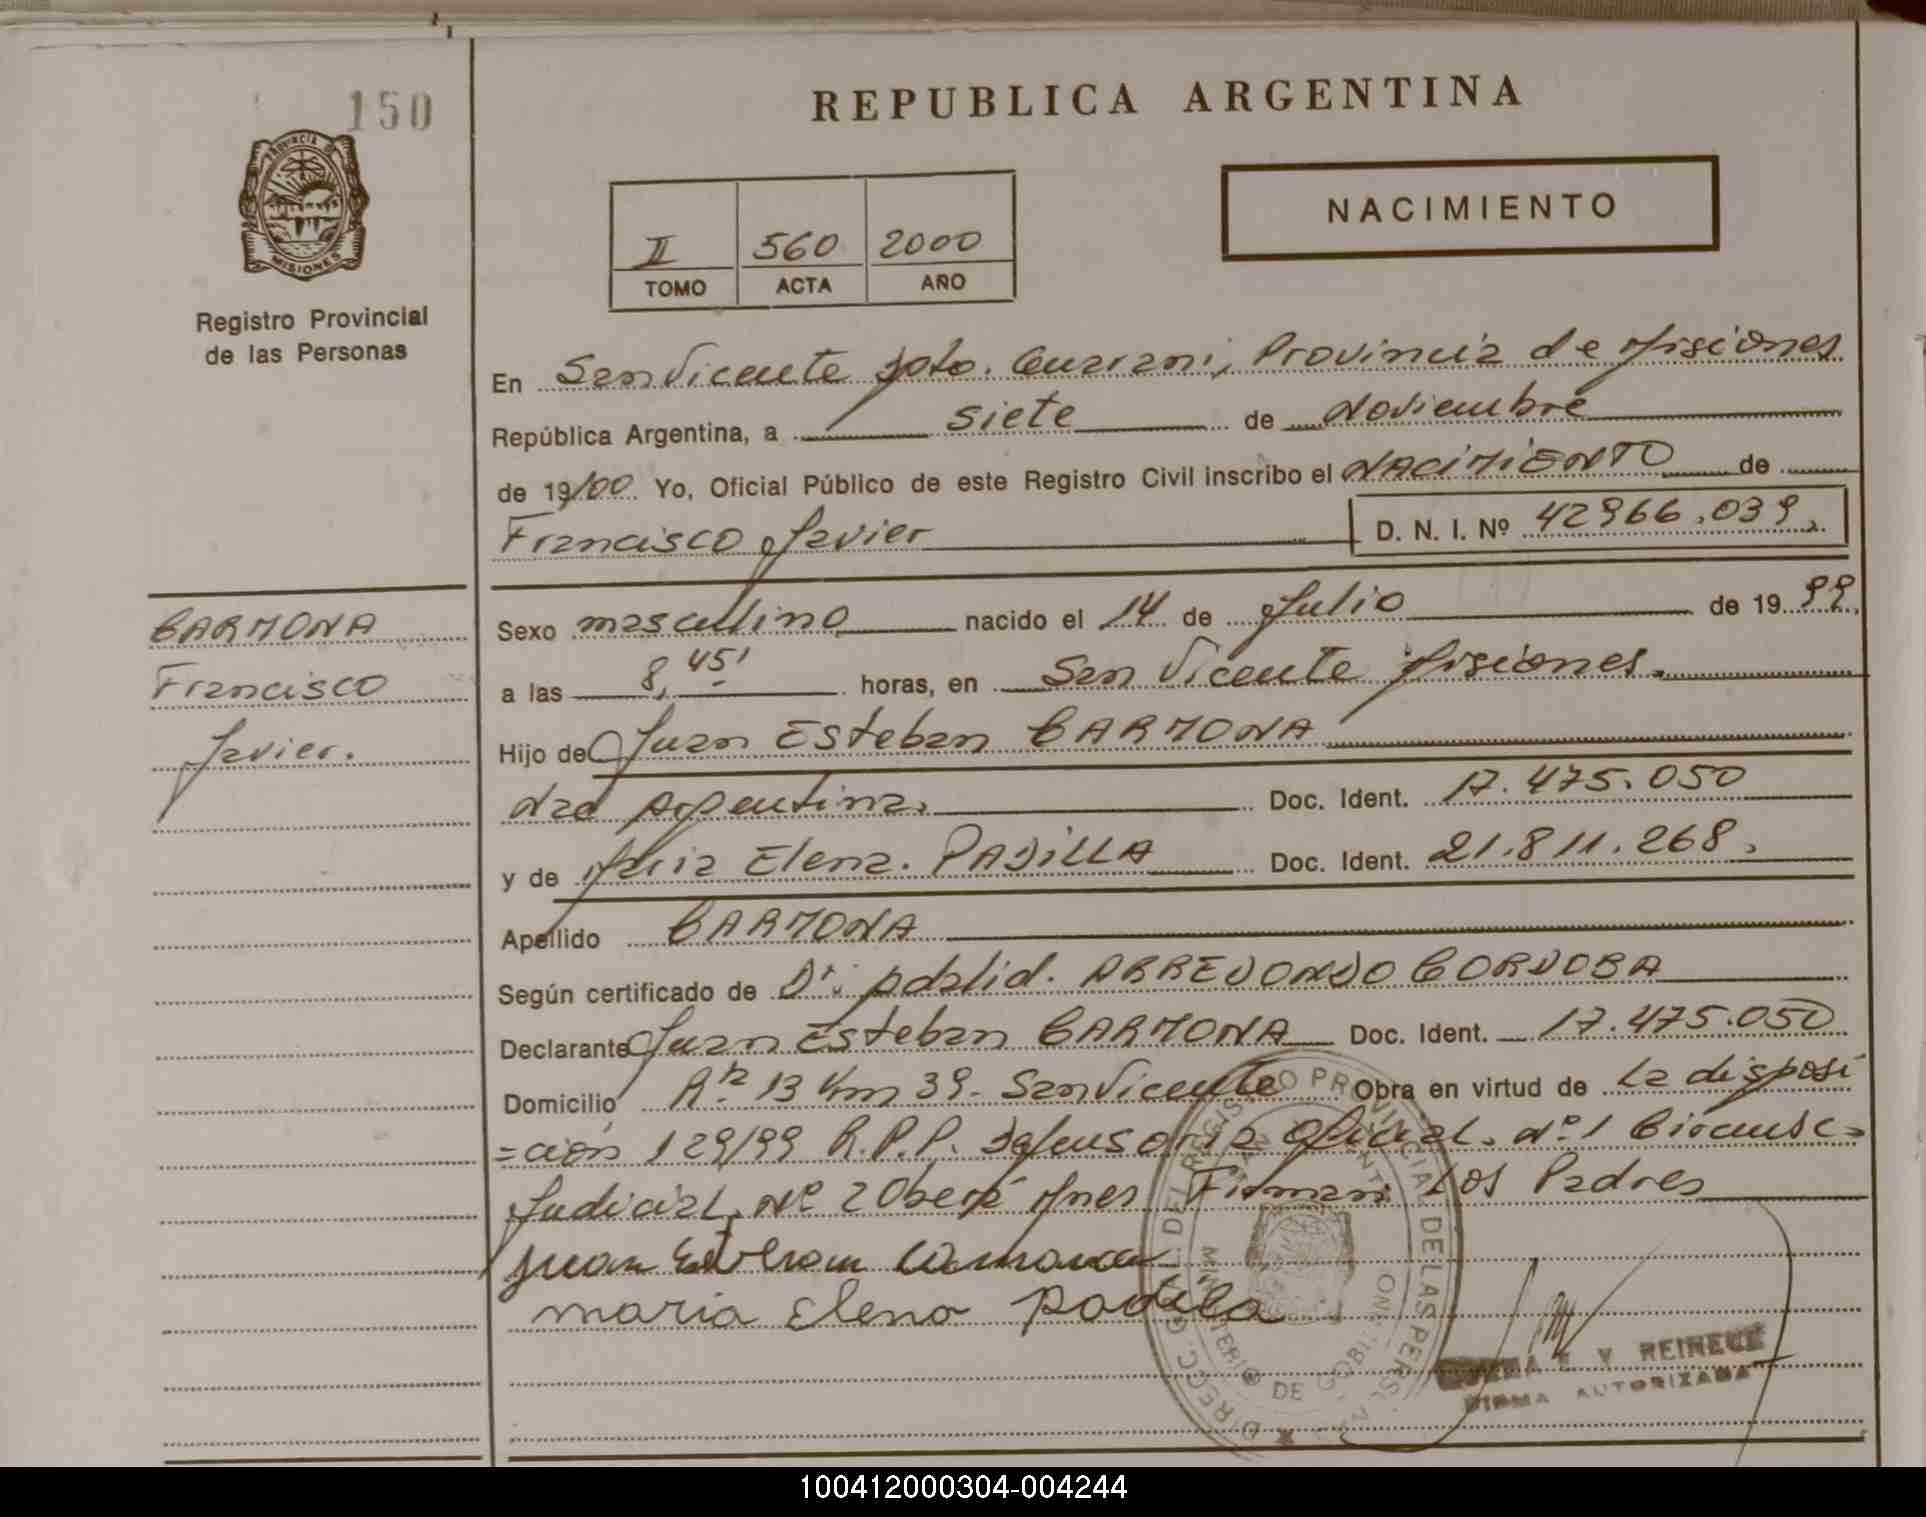 150
PROVINCIA DE
MISIONES
Registro Provincial
de las Personas
CARMONA
Francisco
Javier.
REPUBLICA ARGENTINA
NACIMIENTO
II 560 2000
TOMO ACTA AÑO
En San Vicente Dpto. Guarani, Provincia de Misiones
República Argentina, a siete de Noviembre
de 19/00 Yo, Oficial Público de este Registro Civil inscribo el NACIMIENTO de
Francisco Javier D. N. I. Nº 42966.039.
Sexo masculino nacido el 14 de Julio de 19 99.
a las 8,45' horas, en San Vicente Misiones.
Hijo de Juan Esteban CARMONA
Nad Argentina. Doc. Ident. 17.475.050
y de Maria Elena. PADILLA Doc. Ident. 21.811.268.
Apellido CARMONA
Según certificado de Dr: ARREDONDO CORDOBA
Declarante Juan Esteban CARMONA Doc. Ident. 17.475.050
Domicilio Rta 13 Km 39- San Vicente Obra en virtud de La disposi
=ción 129/99 R.P.P. Defensoria Oficial. Nº 1 Circunsc=
Judicial. Nº 2 Oberá Mnes Firman: Los Padres
Juan Esteban Carmona
maria Elena Padila
DIRECC. GRAL. DEL REGISTRO PROVINCIAL DE LAS PERSONAS
MINISTERIO DE GOBIERNO
REINECK
FIRMA AUTORIZADA
100412000304-004244